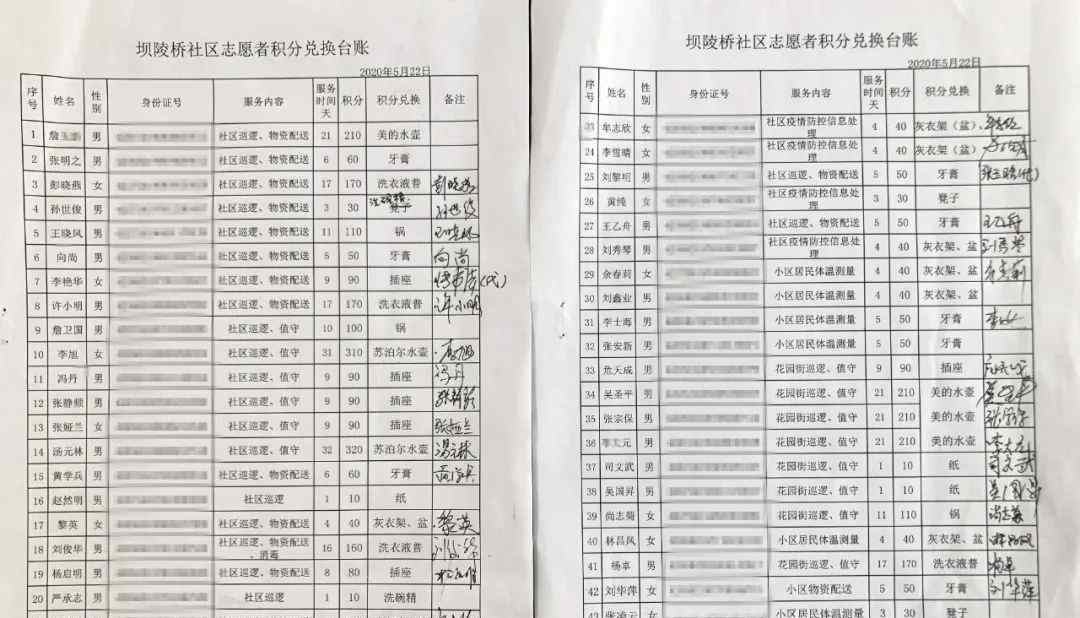 坝陵桥社区志愿者积分兑换台账
2020年5月22日
序号 姓名 性别 身份证号 服务内容 服务时间天 积分 积分兑换 备注
1 男 社区巡逻、物资配送 21 210 美的水壶
2 张明之 男 社区巡逻、物资配送 6 60 牙膏
3 彭晓燕 女 社区巡逻、物资配送 17 170 洗衣液普 彭晓燕
4 孙世俊 男 社区巡逻、物资配送 3 30 凳子 孙世俊
5 王晓风 男 社区巡逻、物资配送 11 110 锅
6 向尚 男 社区巡逻、物资配送 5 50 牙膏 向尚
7 李艳华 女 社区巡逻、物资配送 9 90 插座 (代)
8 许小明 男 社区巡逻、物资配送 17 170 洗衣液普 许小明
9 詹卫国 男 社区巡逻、值守 10 100 锅
10 李旭 女 社区巡逻、值守 31 310 苏泊尔水壶
11 冯丹 男 社区巡逻、值守 9 90 插座 冯丹
12 张静频 男 社区巡逻、值守 9 90 插座
13 张娅兰 女 社区巡逻、值守 9 90 插座 张娅兰
14 汤元林 男 社区巡逻、值守 32 320 苏泊尔水壶
15 黄学兵 男 社区巡逻、物资配送 6 60 牙膏
16 赵然明 男 社区巡逻 1 10 纸
17 黎英 女 社区巡逻、物资配送 4 40 灰衣架、盆 黎英
18 刘俊华 男 社区巡逻、物资配送、消毒 16 160 洗衣液普
19 杨启明 男 社区巡逻、物资配送 8 80 插座
20 严承志 男 社区巡逻 1 10 洗碗精
坝陵桥社区志愿者积分兑换台账
2020年5月22日
序号 姓名 性别 身份证号 服务内容 服务时间天 积分 积分兑换 备注
23 牟志欣 女 社区疫情防控信息处理 4 40 灰衣架（盆）
24 李雪晴 女 社区疫情防控信息处理 4 40 灰衣架（盆）
25 刘黎明 男 社区巡逻、物资配送 5 50 牙膏 (代)
26 黄纯 女 社区疫情防控信息处理 3 30 凳子
27 王乙舟 男 社区巡逻、物资配送 5 50 牙膏 王乙舟
28 刘秀琴 男 社区疫情防控信息处理 4 40 灰衣架、盆
29 余春莉 女 小区居民体温测量 4 40 灰衣架、盆
30 刘鑫业 男 小区居民体温测量 4 40 灰衣架、盆
31 李士海 男 小区居民体温测量 5 50 牙膏
32 张安新 男 小区居民体温测量 5 50 牙膏
33 危天成 男 花园街巡逻、值守 9 90 插座
34 吴圣平 男 花园街巡逻、值守 21 210 美的水壶
35 张宗保 男 花园街巡逻、值守 21 210 美的水壶
36 男 花园街巡逻、值守 21 210 美的水壶
37 司文武 男 花园街巡逻、值守 1 10 纸 司文武
38 吴国昇 男 花园街巡逻、值守 1 10 纸
39 尚志菊 女 花园街巡逻、值守 11 110 锅
40 林昌凤 女 小区居民体温测量 4 40 灰衣架、盆
41 杨卓 男 花园街巡逻、值守 17 170 洗衣液普
42 刘华萍 女 小区物资配送 5 50 牙膏 刘华萍
43 张凌云 女 小区居民体温测量 3 30 凳子